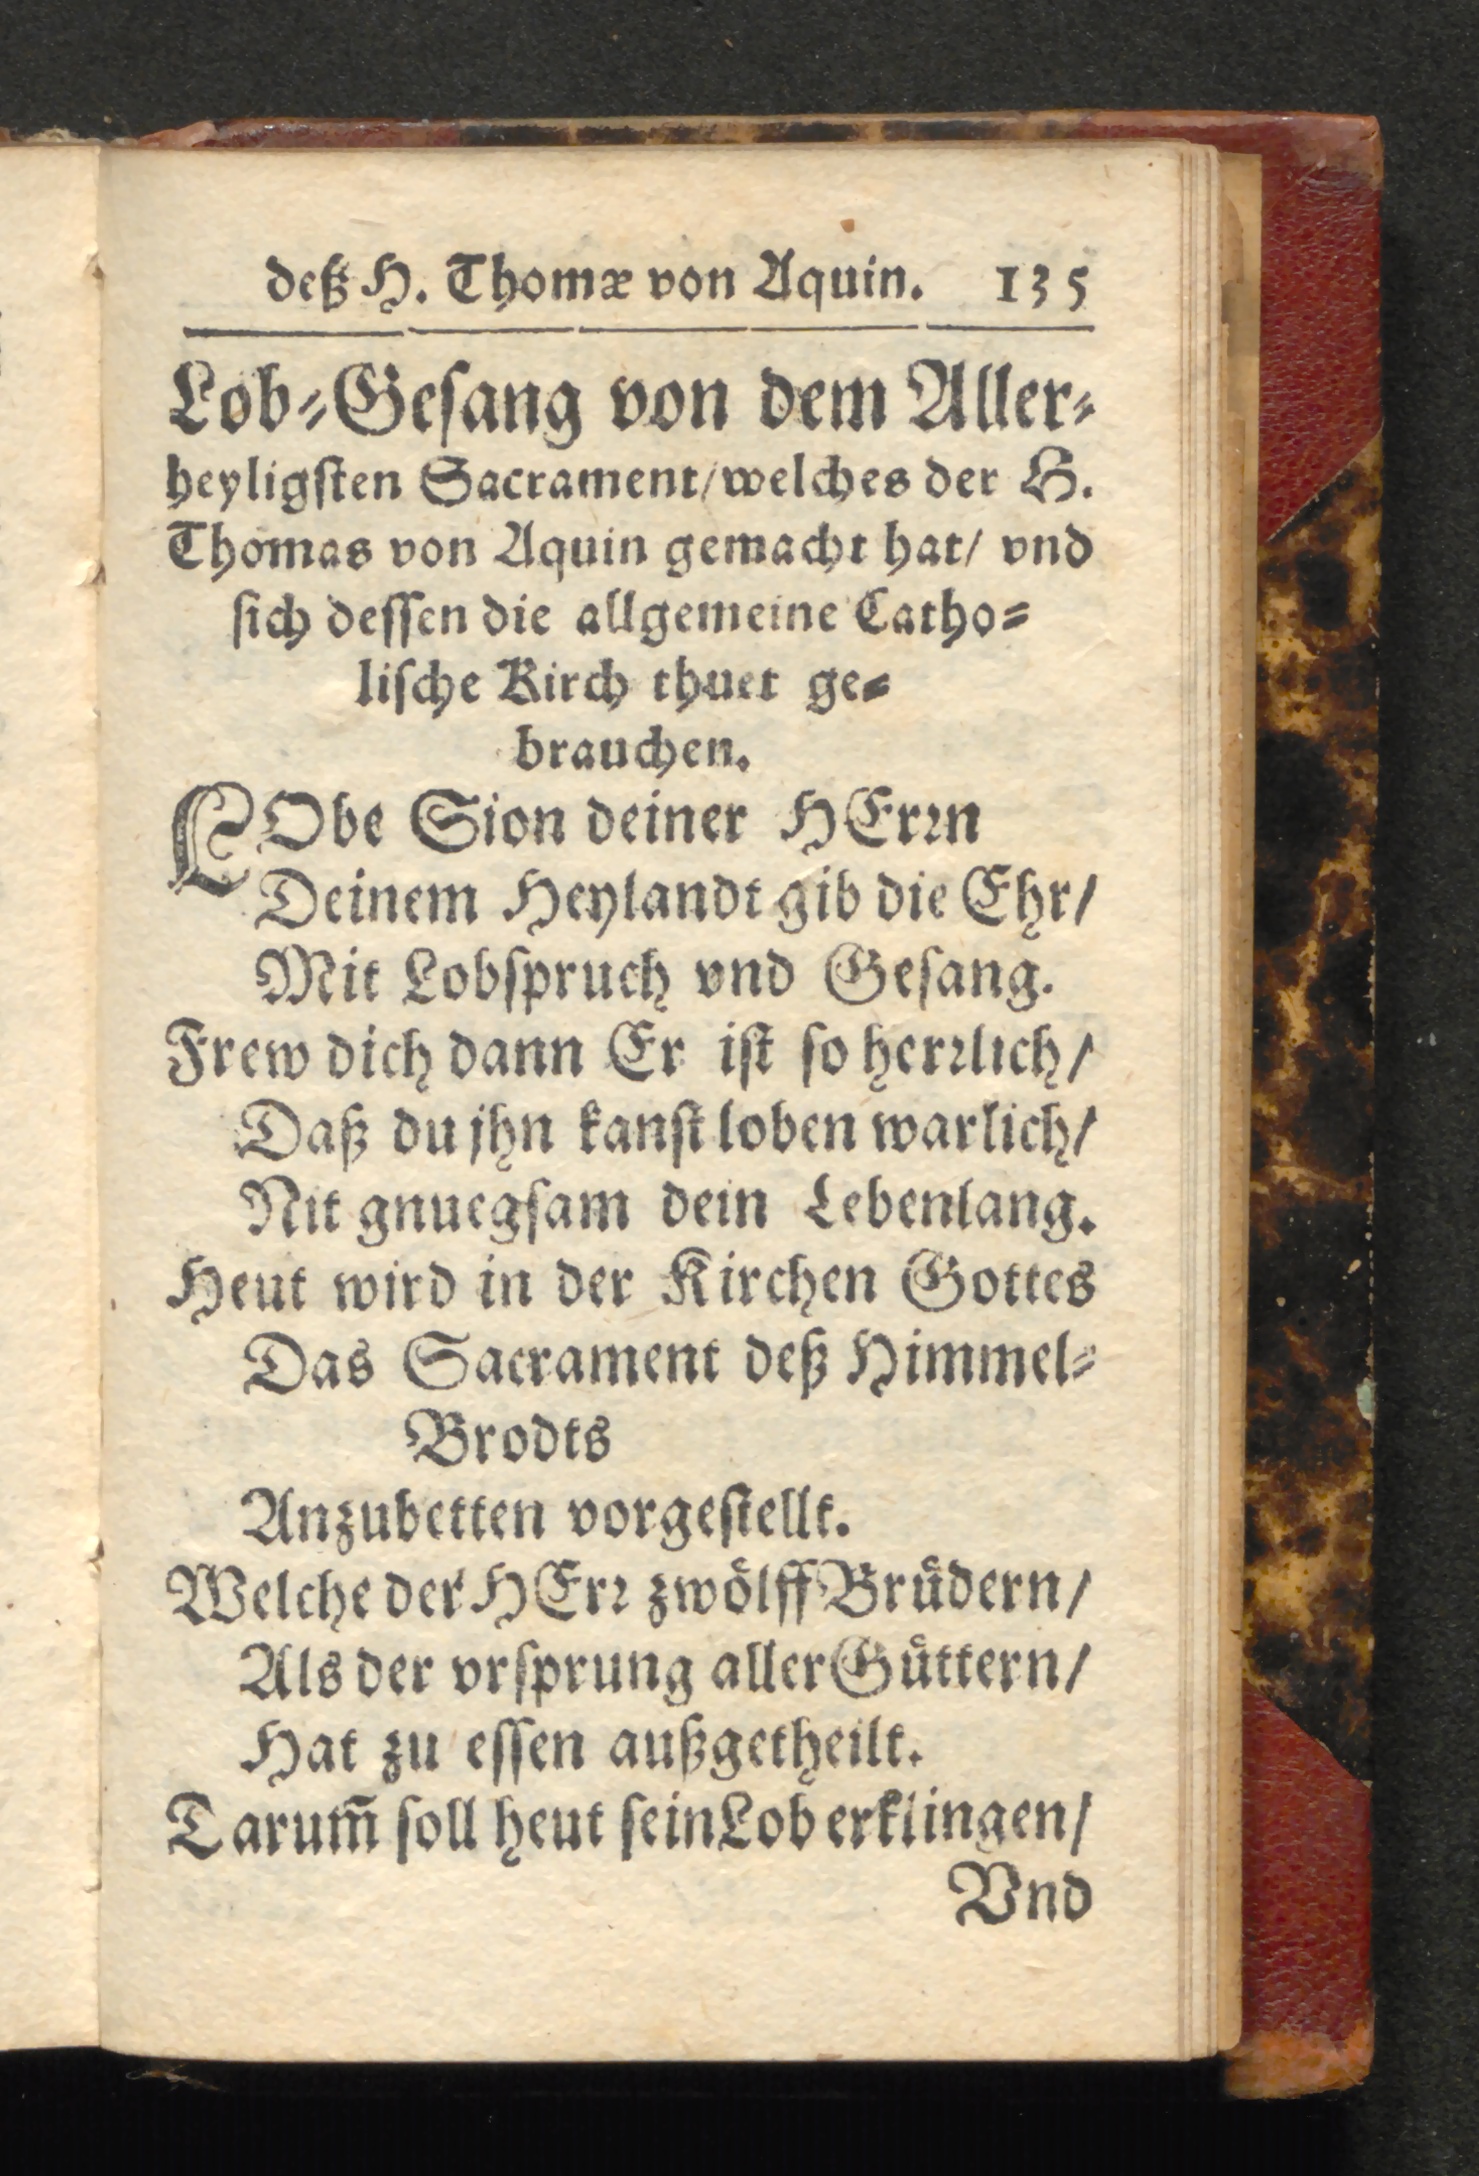 deß H. Thomæ von Aquin. 135
Lob-Gesang von dem Aller-
heyligsten Sacrament/welches der H.
Thomas von Aquin gemacht hat/ vnd
sich dessen die allgemeine Catho-
lische Kirch thuet ge-
brauchen.
LObe Sion deiner HErꝛn
Deinem Heylandt gib die Ehr/
Mit Lobspruch vnd Gesang.
Frew dich dann Er ist so herꝛlich/
Daß du jhn kanst loben warlich/
Nit gnuegsam dein Lebenlang.
Heut wird in der Kirchen Gottes
Das Sacrament deß Himmel-
Brodts
Anzubetten vorgestellt.
Welche der HErꝛ zwoͤlff Bruͤdern/
Als der vrsprung aller Guͤttern/
Hat zu essen außgetheilt.
Darum̃ soll heut sein Lob erklingen/
Vnd